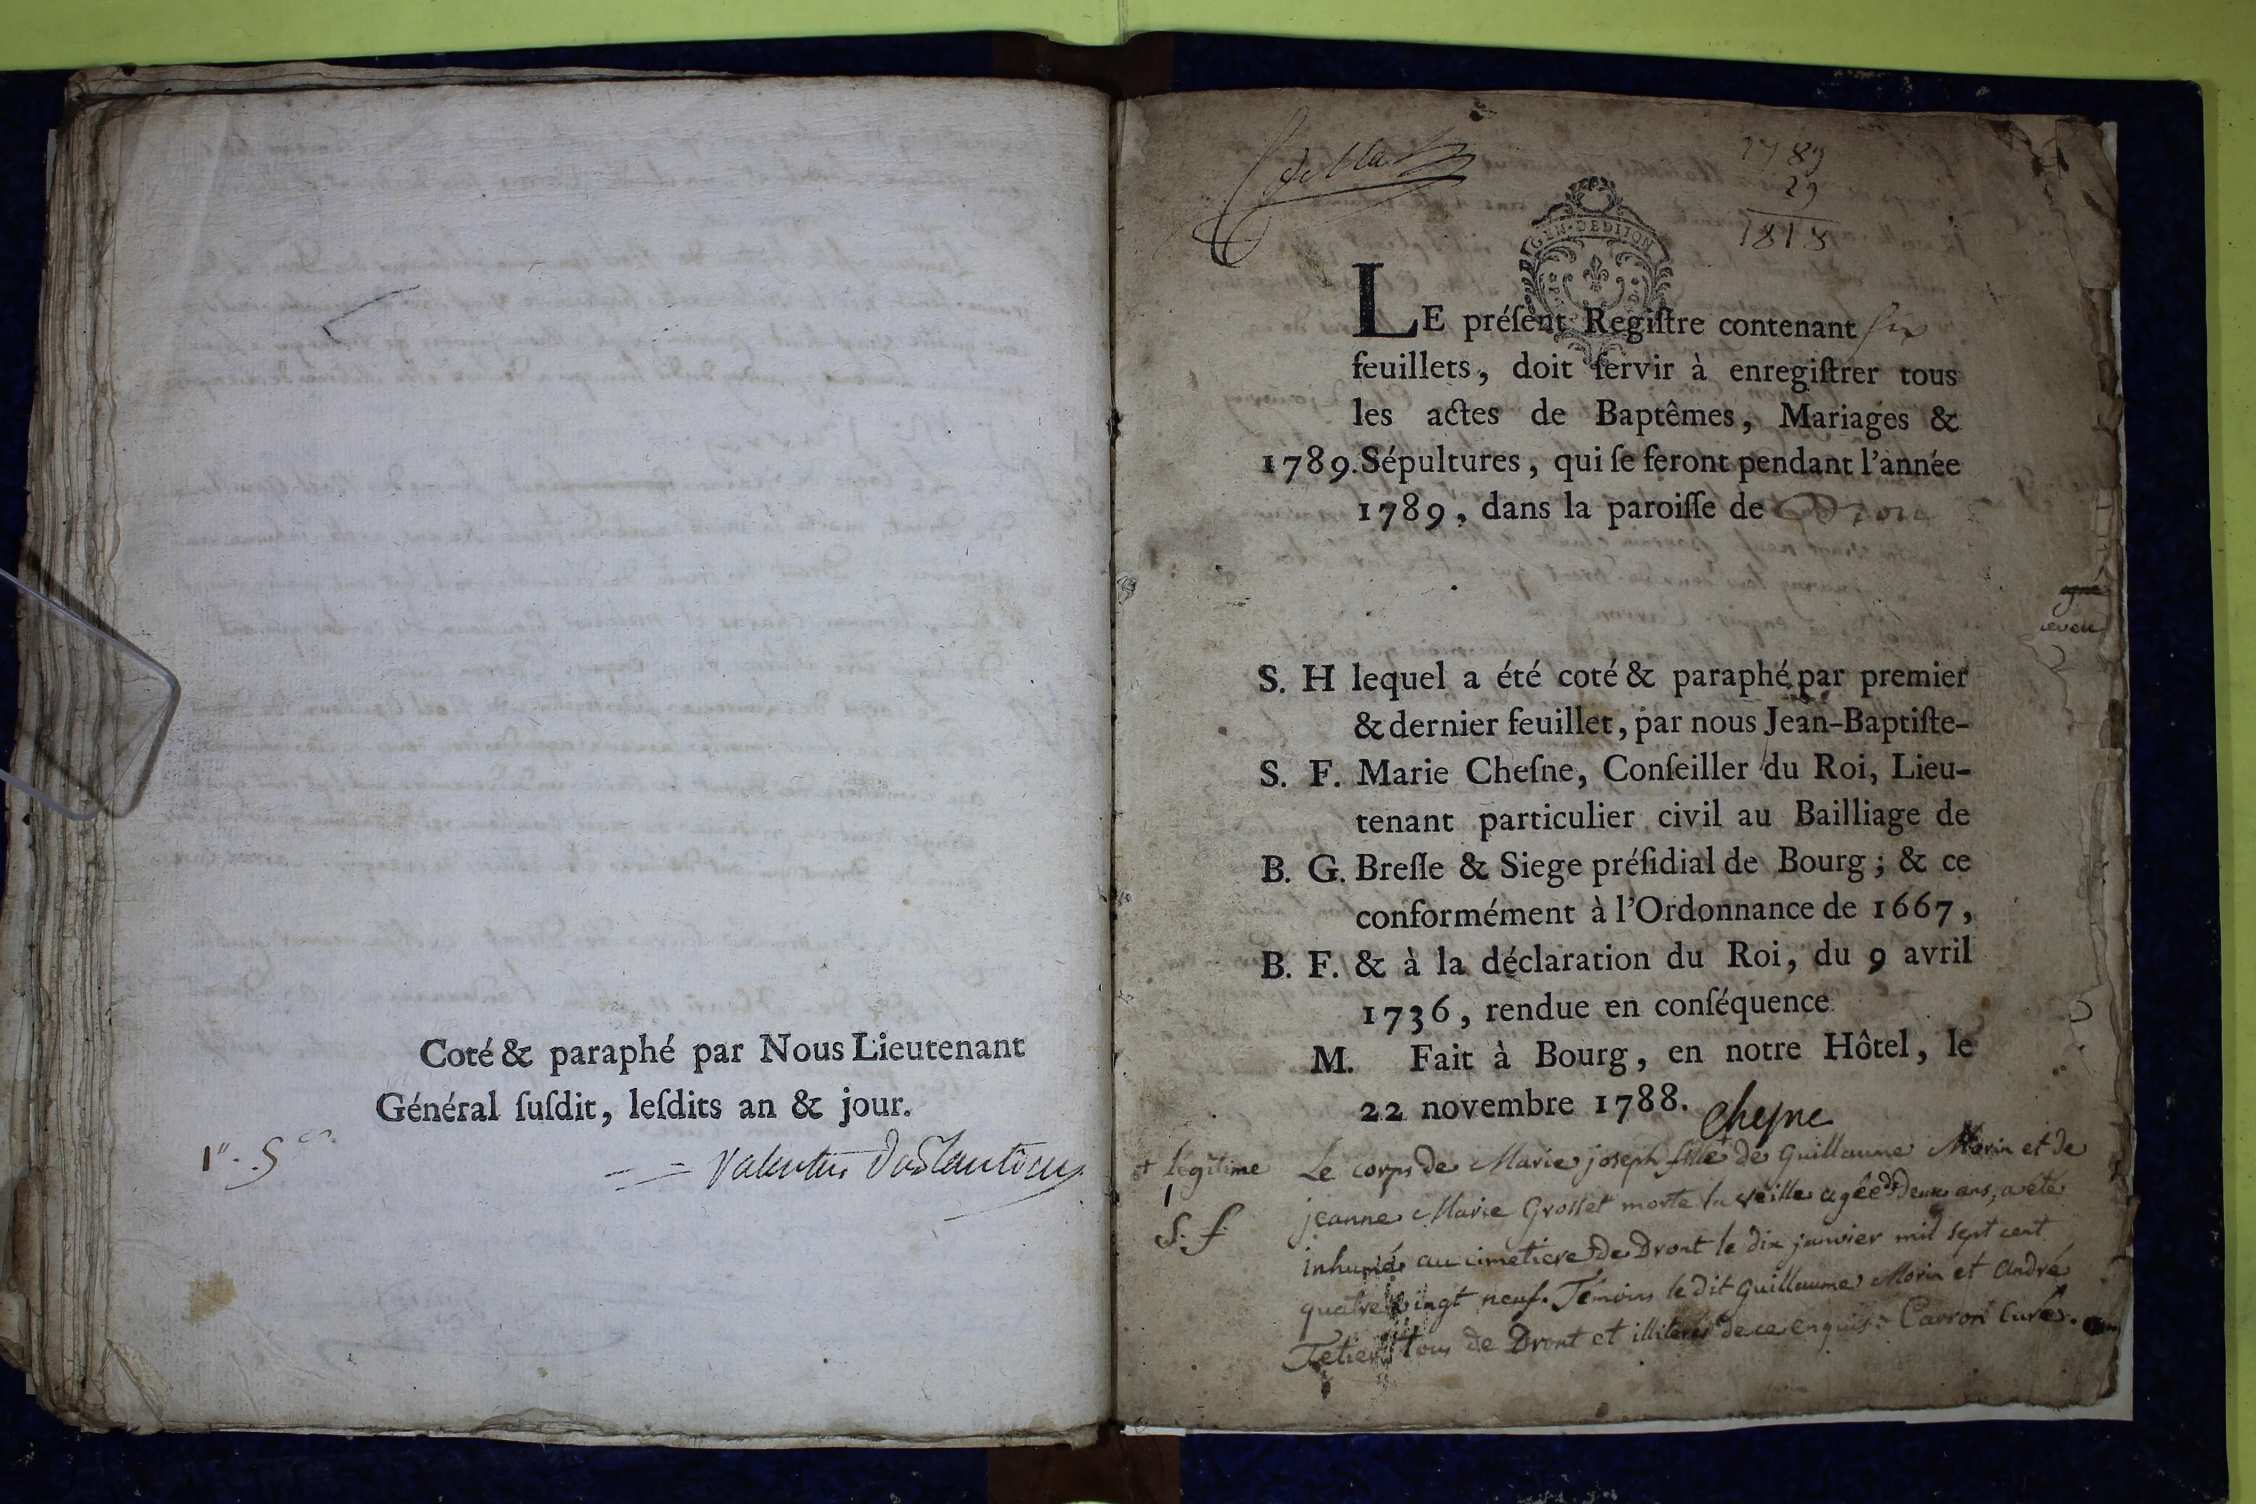 Coté & paraphé par Nous Lieutenant
Général ſuſdit, leſdits an & jour.
1789
29
1818
GEN. DE DIJON
LE préſent Regiſtre contenant ſix
feuillets, doit ſervir à enregiſtrer tous
les actes de Baptêmes, Mariages &
1789. Sépultures, qui ſe feront pendant l'année
1789, dans la paroiſſe de Dront
S. H lequel a été coté & paraphé par premier
& dernier feuillet, par nous Jean-Baptiſte-
S. F. Marie Cheſne, Conſeiller du Roi, Lieu-
tenant particulier civil au Bailliage de
B. G. Breſſe & Siege préſidial de Bourg; & ce
conformément à l'Ordonnance de 1667,
B. F. & à la déclaration du Roi, du 9 avril
1736, rendue en conſéquence
M. Fait à Bourg, en notre Hôtel, le
22 novembre 1788.
Chesne
+ légitime Le corps de Marie joseph fille + de Guillaume Morin et de
1 jeanne Marie Grosset morte la veille agée de deux ans, a été
S. f. inhumée au cimetiere de Dront le dix janvier mil sept cent
quatre vingt neuf. Témoins le dit Guillaume Morin et André
Tetier tous de Dront et illiterés de ce enquis. Carron Curé.